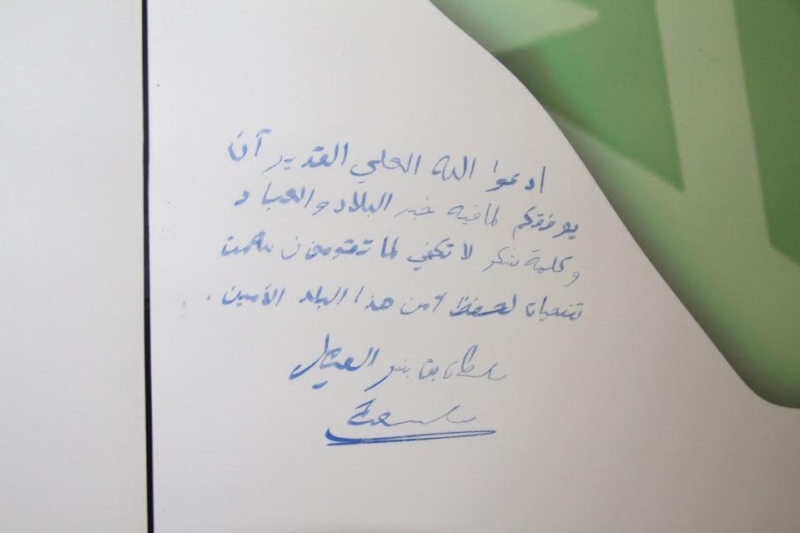 ادعوا الله العلي القدير آن
يوفقكم لمافيه خير البلاد والعباد
وكلمة شكر لا تكفي لما تقومون به من
تضحيات لحفظ آمن هذا البلد الأمين .
سلطان